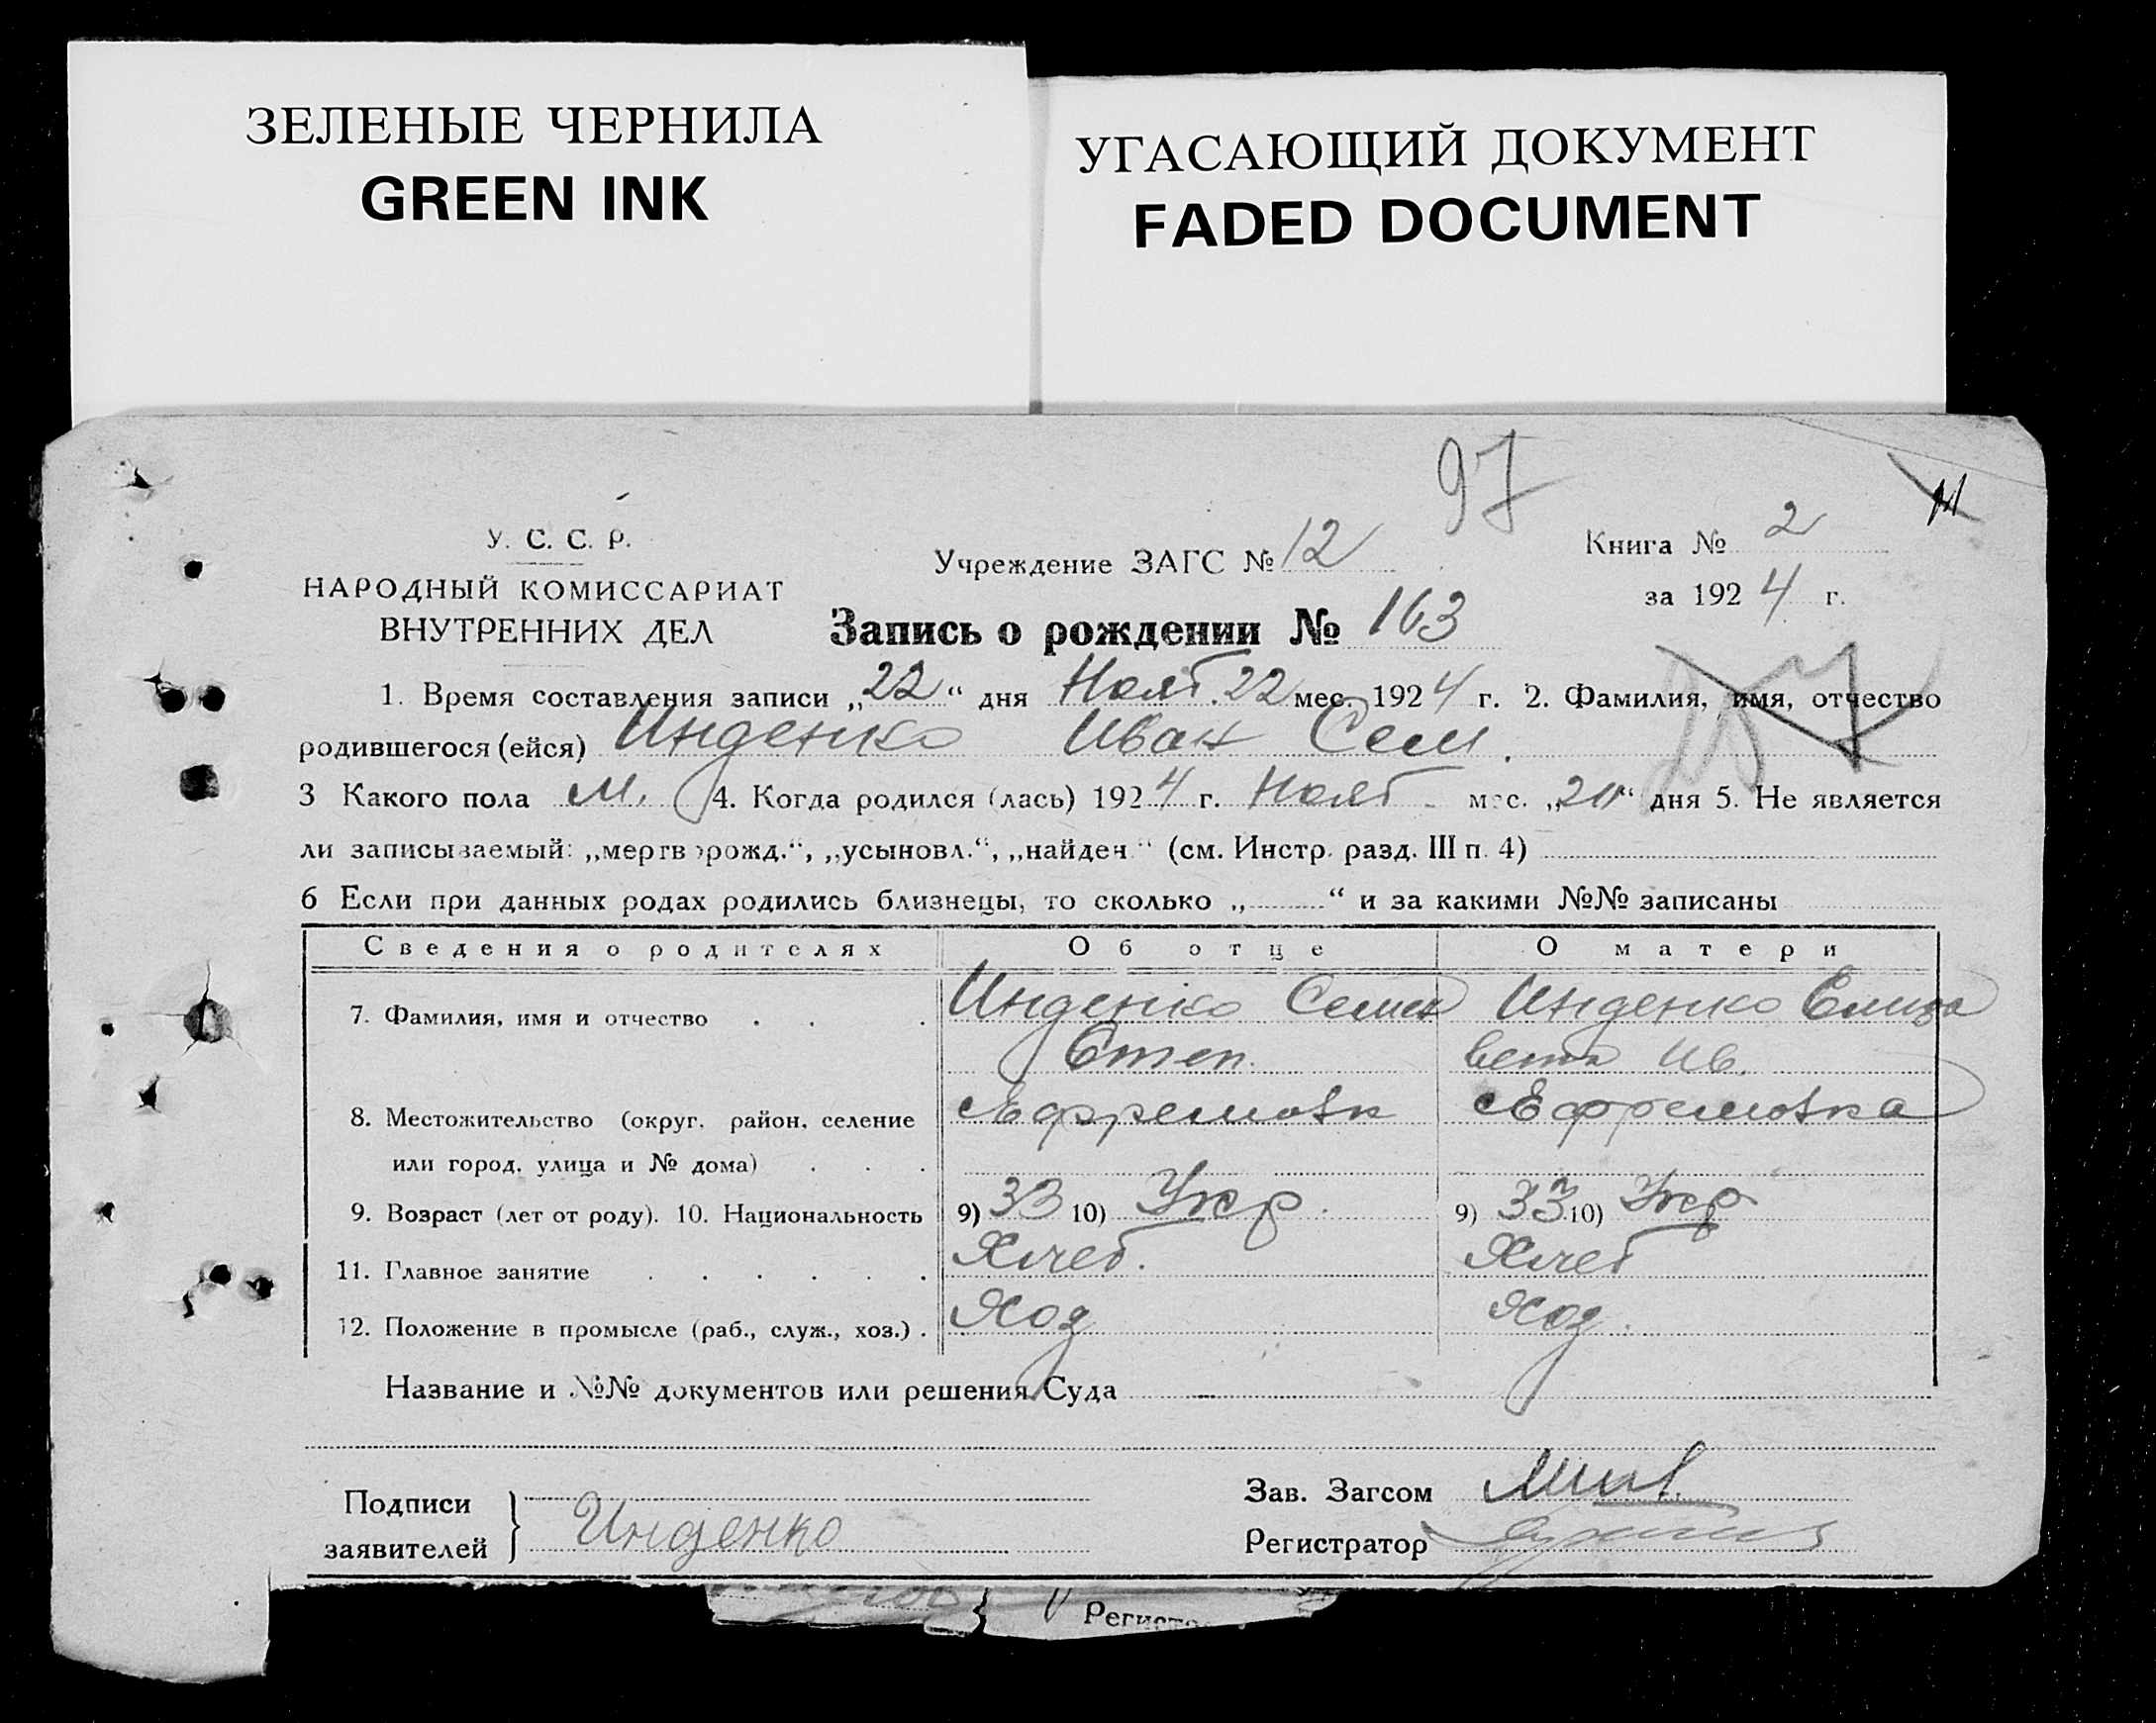 ЗЕЛЕНЫЕ ЧЕРНИЛА
GREEN INK
УГАСАЮЩИЙ ДОКУМЕНТ
FADED DOCUMENT
97
У. С. С. Р.
НАРОДНЫЙ КОМИССАРИАТ
ВНУТРЕННИХ ДЕЛ
Учреждение ЗАГС № 12
Книга № 2
за 1924 г.
Запись о рождении № 163
1. Время составления записи „22“ дня Нояб. 22 мес. 1924 г. 2. Фамилия, имя, отчество
родившегося (ейся) Инденко Иван Сем.
3 Какого пола м. 4. Когда родился (лась) 1924 г. Нояб мес. „ “ дня 5. Не является
ли записываемый: „мертворожд.“, „усыновл.“, „найден.“ (см. Инстр. разд. III п. 4)
6 Если при данных родах родились близнецы, то сколько „ “ и за какими №№ записаны
Сведения о родителях Об отце О матери
7. Фамилия, имя и отчество . . . Инденко Семен Инденко Елиза
Степ. вета Ив.
8. Местожительство (округ, район, селение с Ефремовк с Ефремовка
или город, улица и № дома) . . .
9. Возраст (лет от роду). 10. Национальность 9) 33 10) Укр. 9) 33 10) Укр
11. Главное занятие . . . . . . Хлеб. Хлеб
12. Положение в промысле (раб., служ., хоз.) . Хоз Хоз.
Название и №№ документов или решения Суда —
Подписи
заявителей } Инденко
Зав. Загсом
Регистратор
Регистр